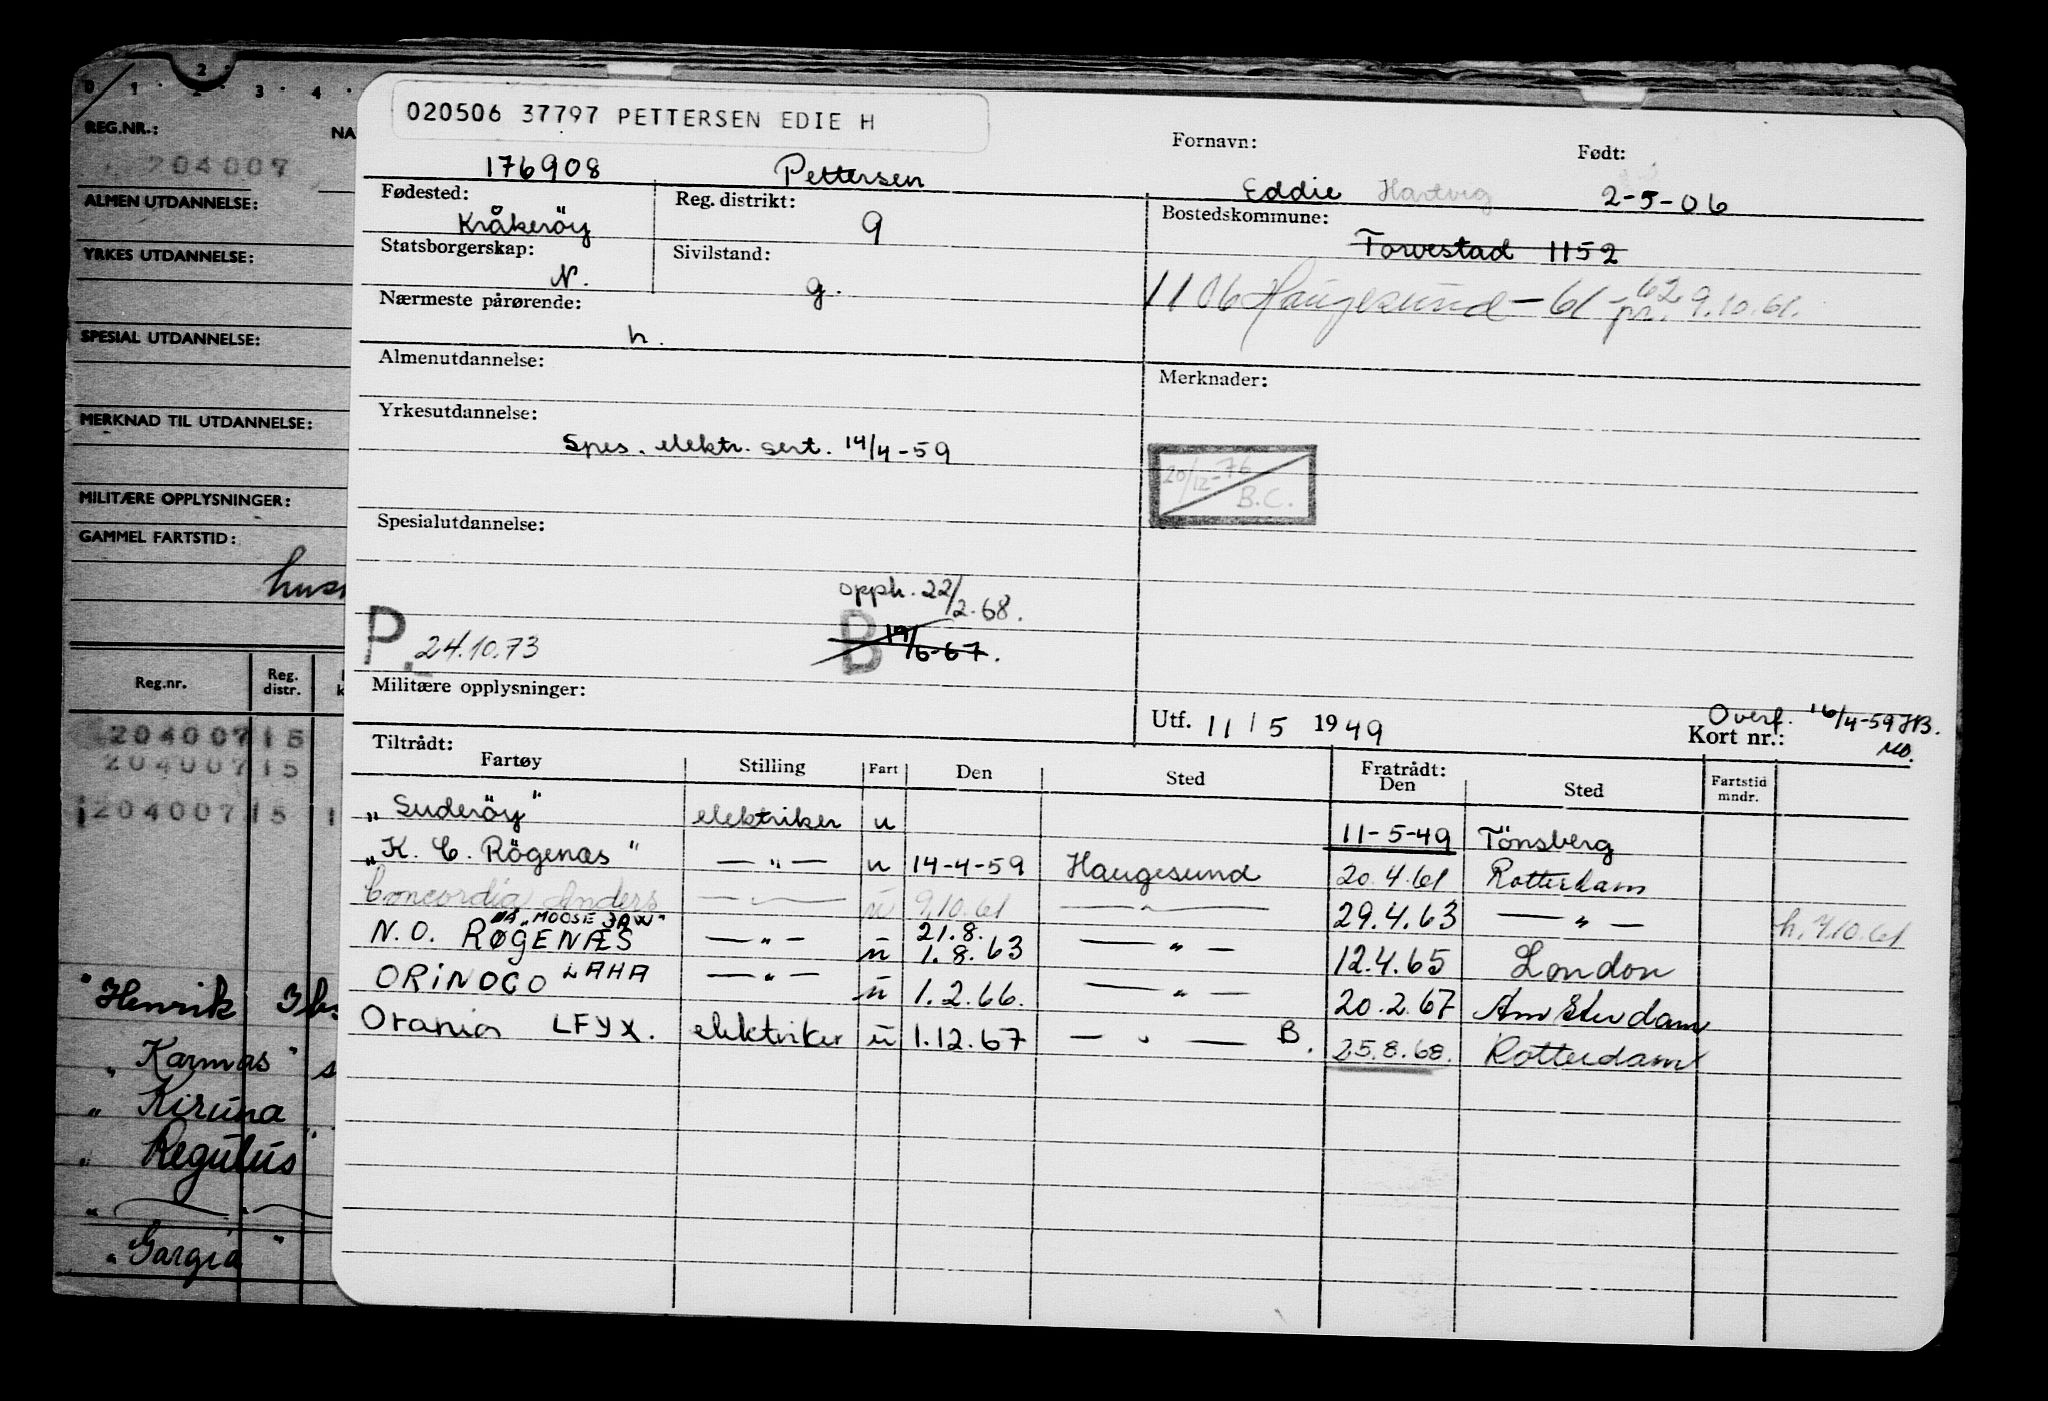 0 1 · 2 · 3 · 4 ·
2
REG.NR.: NA
204007
ALMEN UTDANNELSE:
YRKES UTDANNELSE:
SPESIAL UTDANNELSE:
MERKNAD TIL UTDANNELSE:
MILITÆRE OPPLYSNINGER:
GAMMEL FARTSTID:
Reg.nr. Reg. distr. k
204007 15
204007 15
204007 15 1
"Henrik Ibs
"Karmøs" s
" Kiruna
" Regulus"
" — " —
"Gargia"
020506 37797 PETTERSEN EDIE H
Fornavn: Født:
176908 Pettersen Eddie Hartvig 2-5-06
Fødested: Reg. distrikt: Bostedskommune:
Kråkeröy 9 Torvestad 1152
Statsborgerskap: Sivilstand:
N. g. 1106 Haugesund - 61 - 62 pr. 9.10.61.
Nærmeste pårørende:
h.
Almenutdannelse: Merknader:
Yrkesutdannelse:
Spes. elektr. sert. 14/4-59
20/12-76 B.C.
Spesialutdannelse:
opph. 22/2-68.
P. 24.10.73 B 19/6-67.
Militære opplysninger:
Utf. 11/5 1949 Overf. 16/4-59 HB.
Kort nr.: MO.
Tiltrådt: Fratrådt:
Fartøy Stilling Fart Den Sted Den Sted Fartstid mndr.
"Suderöy" elektriker u 11-5-49 Tönsberg
"K. C. Rögenæs" — " — u 14-4-59 Haugesund 20.4.61 Rotterdam
Concordia Anders — — u 9.10.61 — " — 29.4.63 — " — h. 7.10.61
"MOOSE JAW"
N.O. RØGENÆS — " — u 21.8. 1.8.63 — " — 12.4.65 London
ORINOCO LAHA — " — u 1.2.66. — " — 20.2.67 Amsterdam
Orania LFYX. elektriker u 1.12.67 — " — B. 25.8.68. Rotterdam